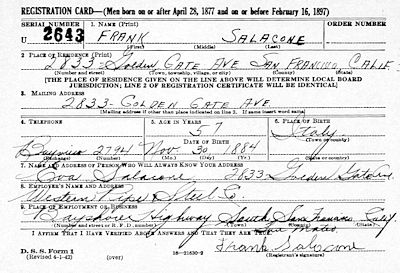 REGISTRATION CARD—(Men born on or after April 28, 1877 and on or before February 16, 1897)
SERIAL NUMBER 1. NAME (Print) ORDER NUMBER
U 2643 FRANK SALACONE
(First) (Middle) (Last)
2. PLACE OF RESIDENCE (Print)
2833 - Golden GATE AVE SAN FRANCISCO, CALIF-
(Number and street) (Town, township, village, or city) (County) (State)
[THE PLACE OF RESIDENCE GIVEN ON THE LINE ABOVE WILL DETERMINE LOCAL BOARD
JURISDICTION; LINE 2 OF REGISTRATION CERTIFICATE WILL BE IDENTICAL]
3. MAILING ADDRESS
2833 - GOLDEN GATE AVE.
[Mailing address if other than place indicated on line 2. If same insert word same]
4. TELEPHONE 5. AGE IN YEARS 6. PLACE OF BIRTH
57 Italy
DATE OF BIRTH (Town or county)
Bayview 2794 Nov. 30 1884
(Exchange) (Number) (Mo.) (Day) (Yr.) (State or country)
7. NAME AND ADDRESS OF PERSON WHO WILL ALWAYS KNOW YOUR ADDRESS
Eva Salacone 2833 Golden Gate Ave
8. EMPLOYER'S NAME AND ADDRESS
Western Pipe & Steel Co.
9. PLACE OF EMPLOYMENT OR BUSINESS
Bayshore Highway South San Franc. Calif.
(Number and street or R. F. D. number) (Town) (County) (State)
I AFFIRM THAT I HAVE VERIFIED ABOVE ANSWERS AND THAT THEY ARE TRUE.
D. S. S. Form 1
(Revised 4-1-42) (over) 16—21630-2 Frank Salacone